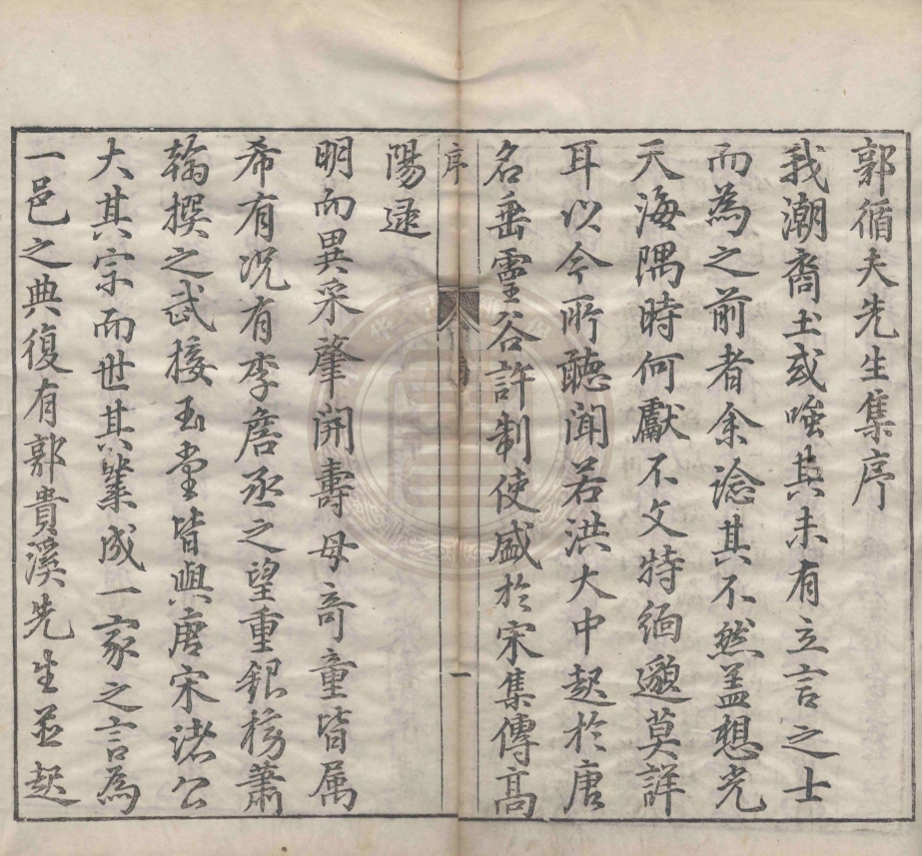 郭循夫先生集序
我潮裔土或嗤其未有立言之士
而為之前者余谂其不然盖想光
天海隅時何獻不文特緬邈莫詳
耳以今所聽聞若洪大中起於唐
名垂靈谷許制使盛於宋集傳髙
陽逮
序
一
明而異采肇開壽母奇童皆属
希有况有李詹丞之望重銀榜蕭
翰撰之武接玉堂皆與唐宋诸公
大其宗而世其業成一家之言為
一邑之典復有郭貴溪先生並起